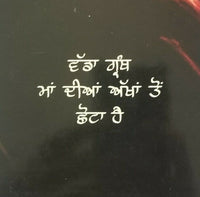 ਵੱਡਾ ਗ੍ਰੰਥ
ਮਾਂ ਦੀਆਂ ਅੱਖਾਂ ਤੋਂ
ਛੋਟਾ ਹੈ